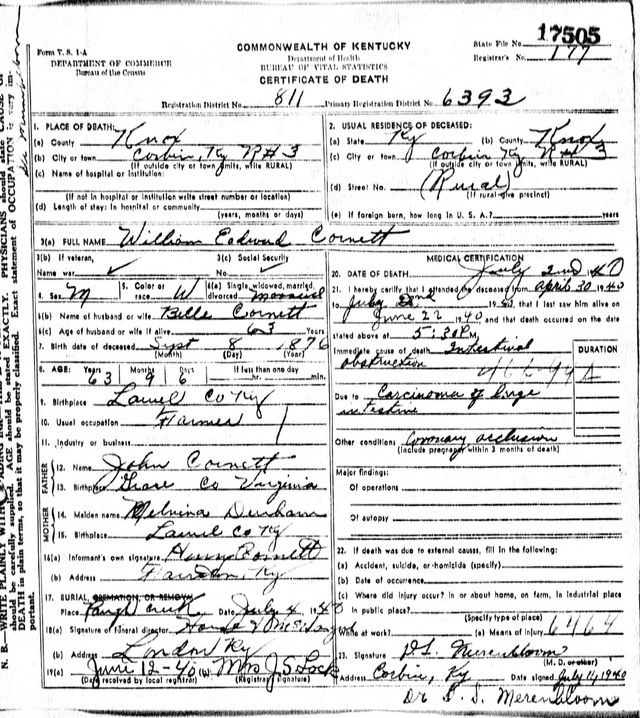 17505
Form V. S. 1-A
DEPARTMENT OF COMMERCE
Bureau of the Census
COMMONWEALTH OF KENTUCKY
Department of Health
BUREAU OF VITAL STATISTICS
CERTIFICATE OF DEATH
State File No.
Registrar's No. 177
Registration District No. 811 Primary Registration District No. 6393
1. PLACE OF DEATH:
(a) County Knox
(b) City or town Corbin, Ky R#3
(If outside city or town limits, write RURAL)
(c) Name of hospital or institution:
(If not in hospital or institution write street number or location)
(d) Length of stay: In hospital or community
(years, months or days)
2. USUAL RESIDENCE OF DECEASED:
(a) State Ky (b) County Knox
(c) City or town Corbin Ky R#3
(If outside city or town limits, write RURAL)
(d) Street No. (Rural)
(If rural give precinct)
(e) If foreign born, how long in U. S. A.? years
3(a) FULL NAME William Edward Cornett
3(b) If veteran,
Name war
3(c) Social Security
No.
4. Sex M
5. Color or race W
6(a) Single, widowed, married, divorced married
6(b) Name of husband or wife Belle Cornett
6(c) Age of husband or wife if alive 63 Years
7. Birth date of deceased Sept 8 1876
(Month) (Day) (Year)
8. AGE: Years 63 Months 9 Days 6 If less than one day hr. min.
9. Birthplace Laurel Co Ky
10. Usual occupation Farmer
11. Industry or business
FATHER
12. Name John Cornett
13. Birthplace Co Virginia
MOTHER
14. Maiden name Melvina Denham
15. Birthplace Laurel Co Ky
16(a) Informant's own signature Cornett
(b) Address Ky
17. BURIAL, CREMATION, OR REMOVAL
Place Creek Date July 4 1940
18(a) Signature of funeral director House &
(b) Address London Ky
19(a) June 12-40 (b) Mrs J S Lock
(Date received by local registrar) (Registrar's signature)
MEDICAL CERTIFICATION
20. DATE OF DEATH July 2nd 1940
21. I hereby certify that I attended the deceased from April 30 1940
to July 2nd 1940, that I last saw him alive on
June 22 1940 and that death occurred on the date
stated above at 5:30 P.M.
Immediate cause of death Intestinal
obstruction
DURATION
Due to Carcinoma of large
intestine
Other conditions Coronary occlusion
(Include pregnancy within 3 months of death)
Major findings:
Of operations
Of autopsy
22. If death was due to external causes, fill in the following:
(a) Accident, suicide, or homicide (specify)
(b) Date of occurrence
(c) Where did injury occur? In or about home, on farm, in industrial place
In public place?
(Specify type of place)
While at work? (e) Means of injury 6464
23. Signature D.S. Merenbloom
(M. D. or other)
Address Corbin, Ky Date signed July 11, 1940
Dr S. S. Merenbloom